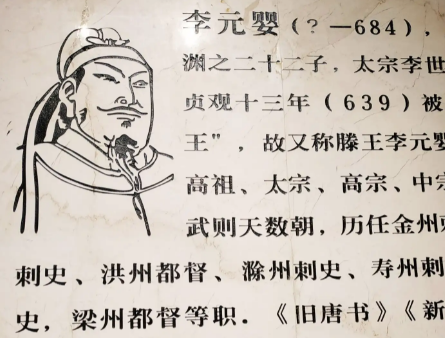 李元婴（？—684），
渊之二十二子，太宗李世
贞观十三年（639）被
王”，故又称滕王李元婴
高祖、太宗、高宗、中宗
武则天数朝，历任金州刺
刺史、洪州都督、滁州刺史、寿州刺
史，梁州都督等职．《旧唐书》《新